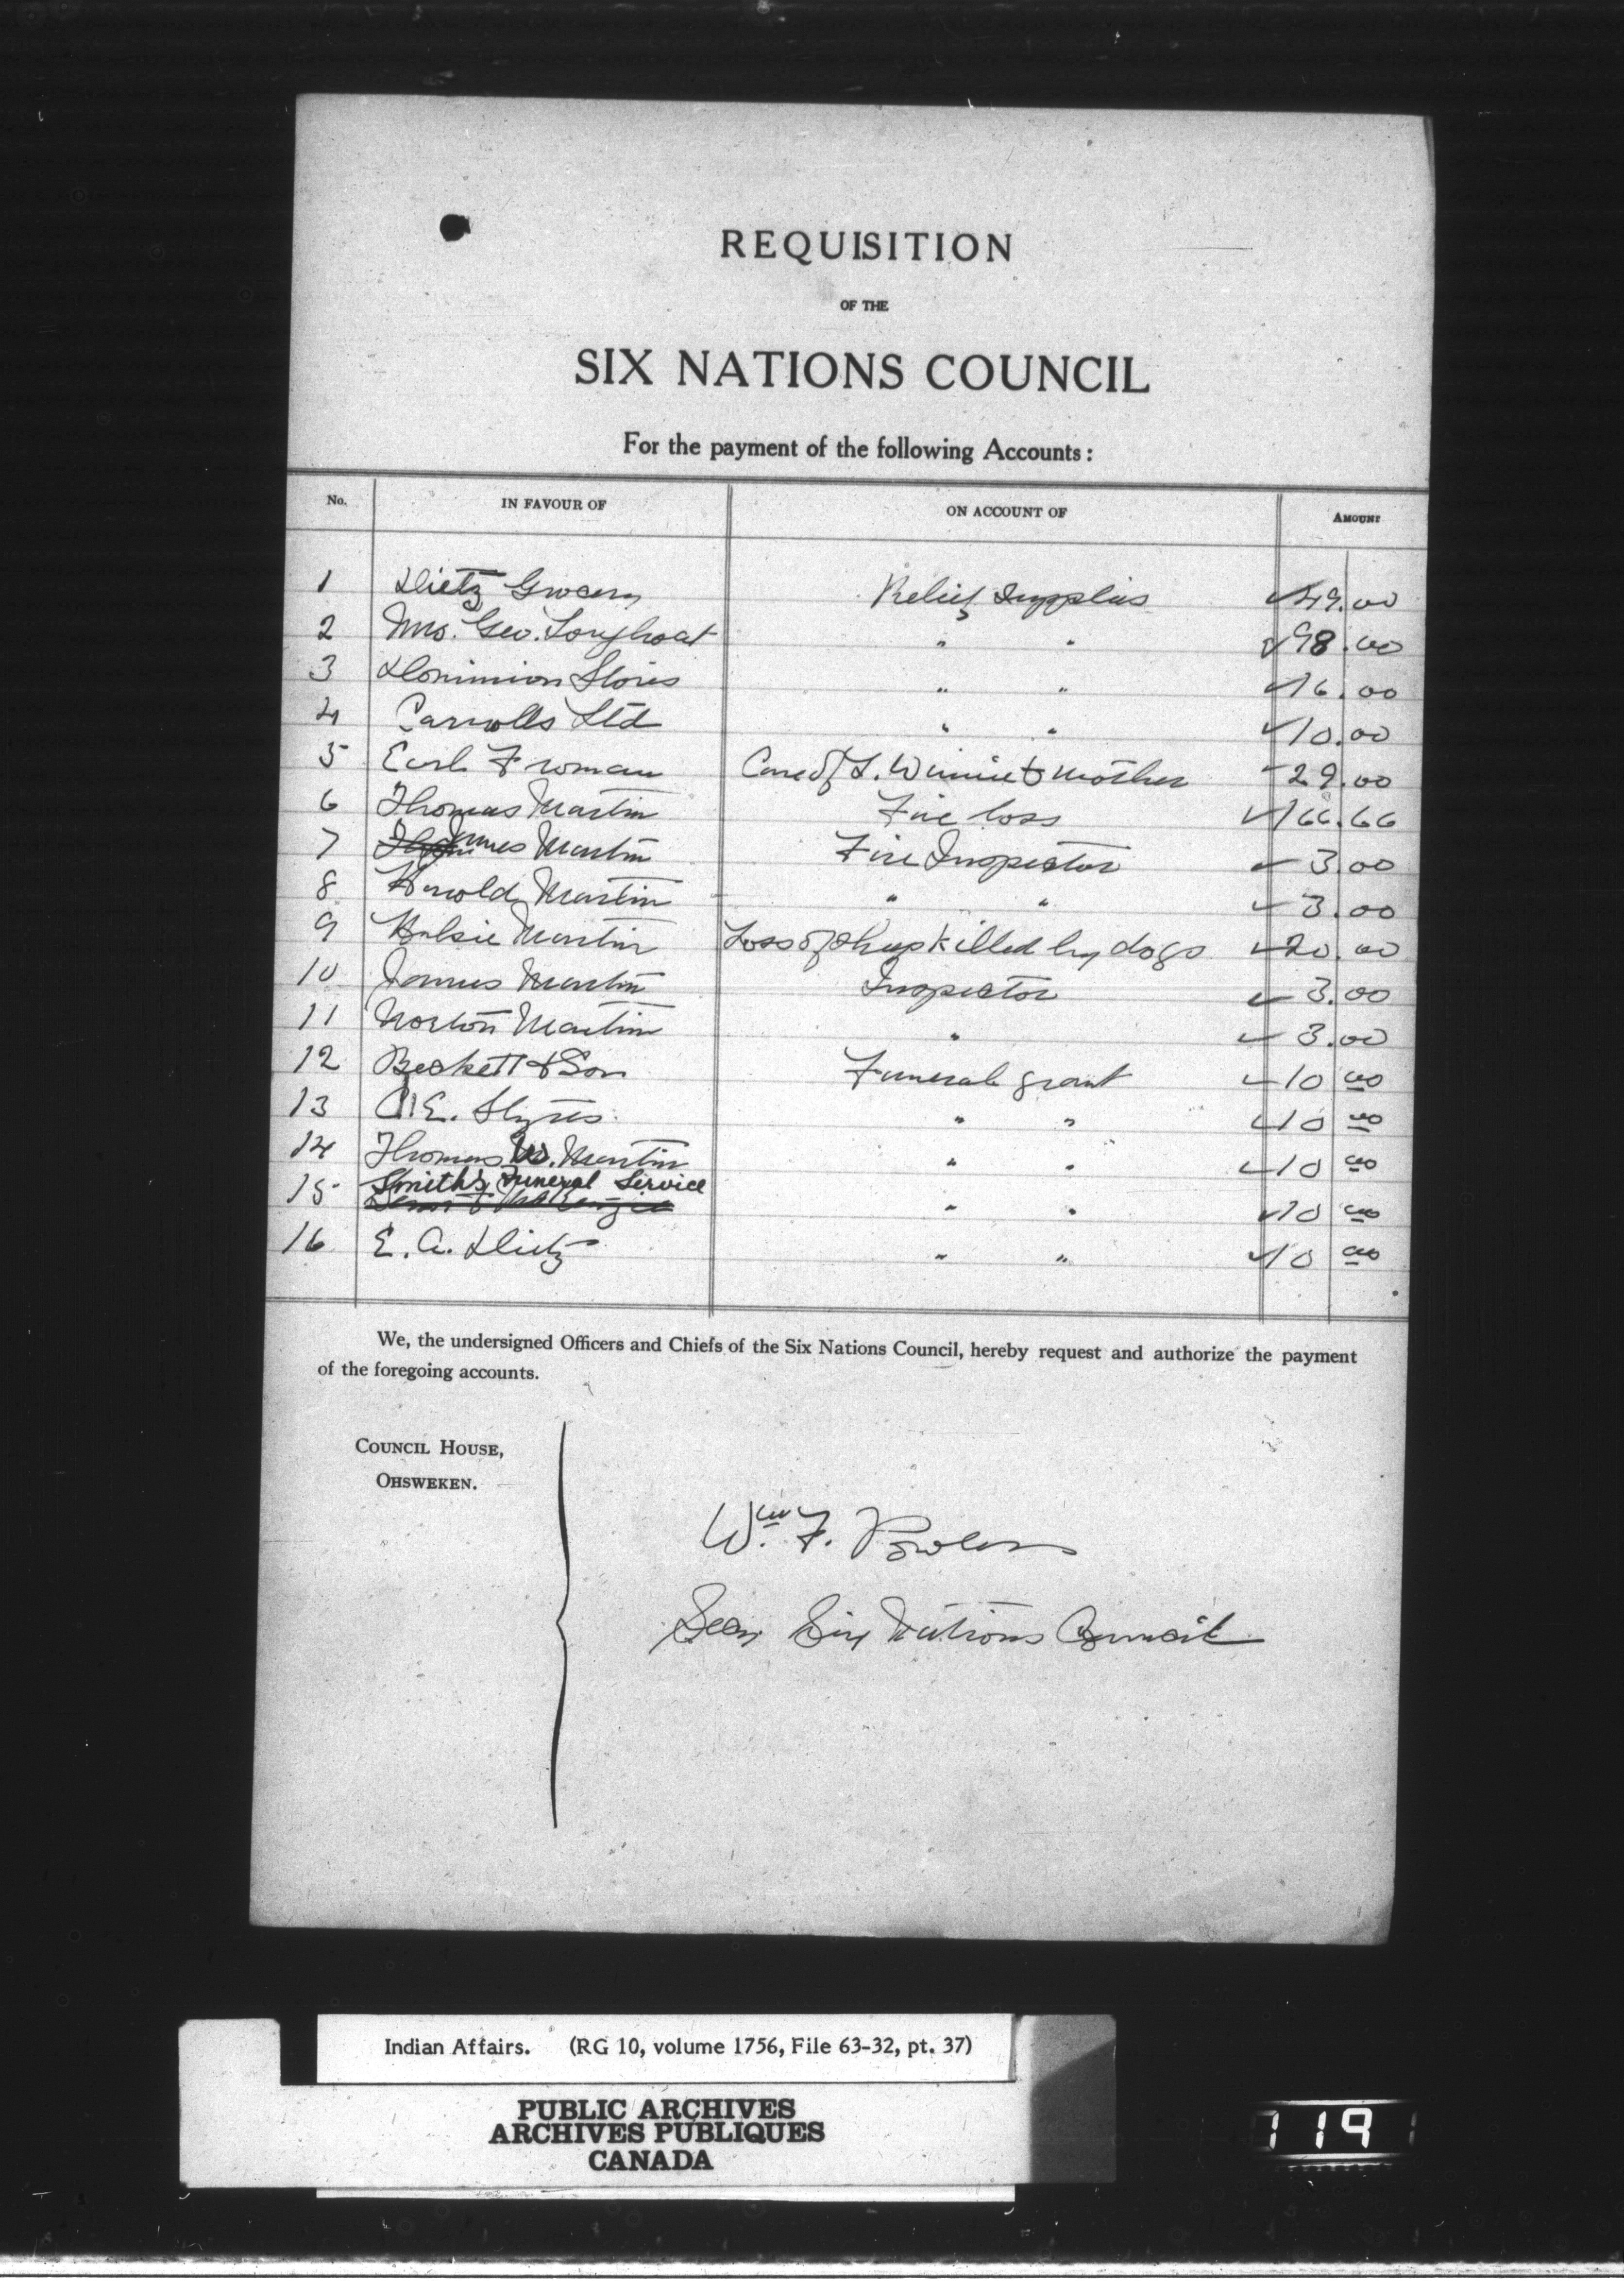 REQUISITION
OF THE
SIX NATIONS COUNCIL
For the payment of the following Accounts:
No. IN FAVOUR OF ON ACCOUNT OF AMOUNT
1 Dietz Grocery Relief Supplies 49.00
2 Mrs. Geo. Longboat " " 98.00
3 Dominion Stores " " 16.00
4 Carrolls Ltd " " 10.00
5 Earl Froman Care of L. Winnie & mother 29.00
6 Thomas Martin Fire loss 166.66
7 James Martin Fire Inspector 3.00
8 Harold Martin " " 3.00
9 Martin Loss of sheep killed by dogs 20.00
10 James Martin Inspector 3.00
11 Norton Martin " 3.00
12 Beckett & Son Funeral grant 10 00
13 E. Styres " " 10 00
14 Thomas W. Martin " " 10 00
15 Smith's Funeral Service " " 10 00
16 E. A. Dietz " " 10 00
We, the undersigned Officers and Chiefs of the Six Nations Council, hereby request and authorize the payment
of the foregoing accounts.
COUNCIL HOUSE,
OHSWEKEN.
Wm. F. Powless
Secy Six Nations Council
Indian Affairs. (RG 10, volume 1756, File 63-32, pt. 37)
PUBLIC ARCHIVES
ARCHIVES PUBLIQUES
CANADA
119